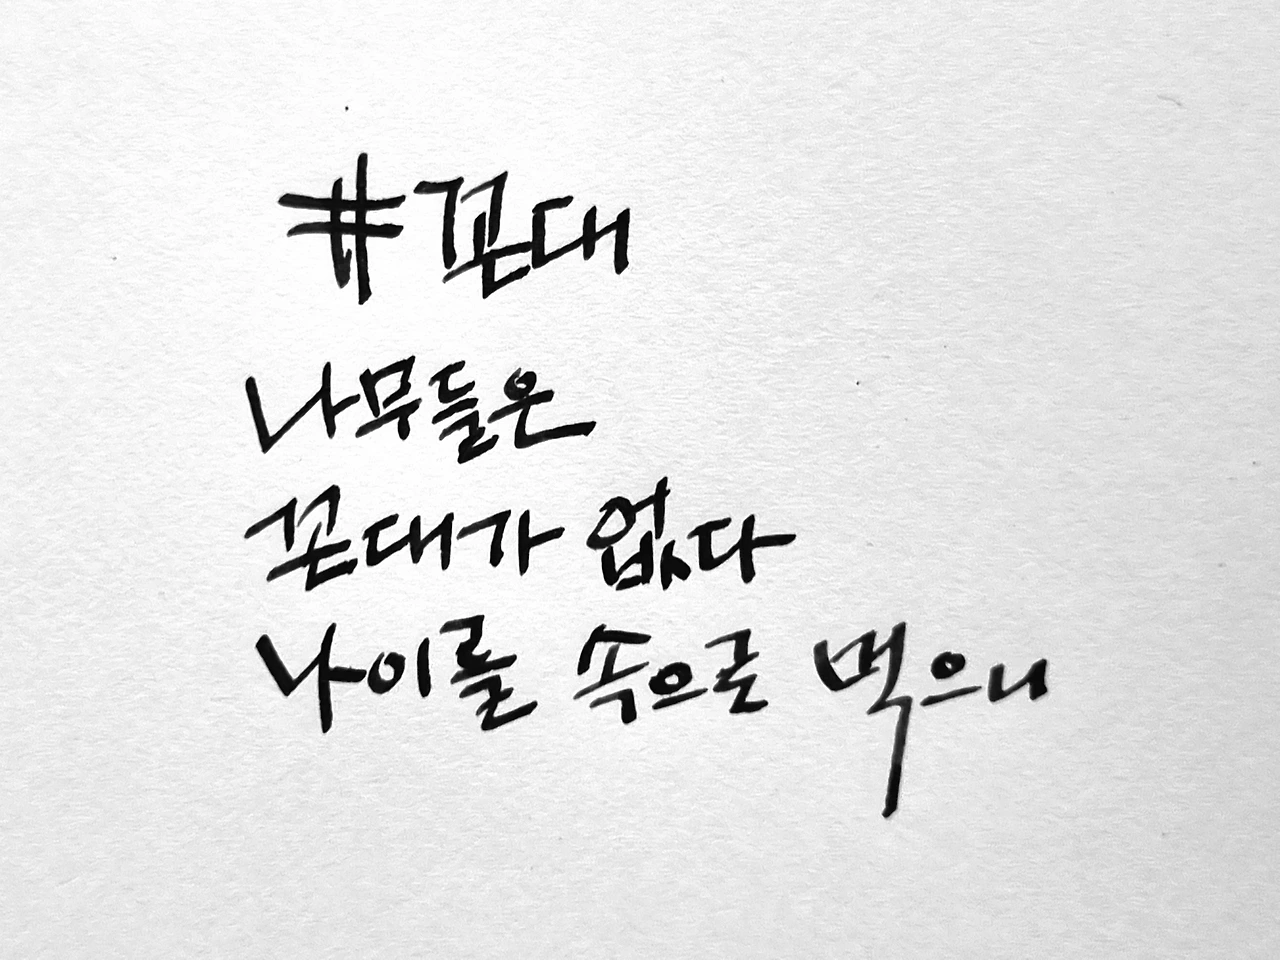 #꼰대
나무들은
꼰대가 없다
나이를 속으로 먹으니